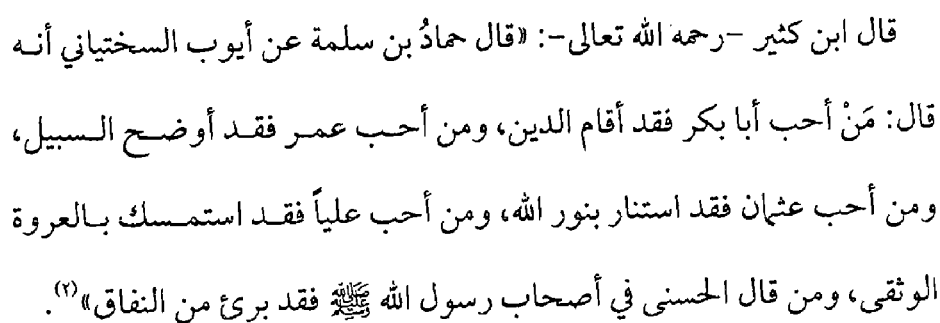 قال ابن كثير -رحمه الله تعالى-: «قال حمادُ بن سلمة عن أيوب السختياني أنه
قال: مَنْ أحب أبا بكر فقد أقام الدين، ومن أحب عمر فقد أوضح السبيل،
ومن أحب عثمان فقد استنار بنور الله، ومن أحب علياً فقد استمسك بالعروة
الوثقى، ومن قال الحسنى في أصحاب رسول الله ﷺ فقد برئ من النفاق»(٢).